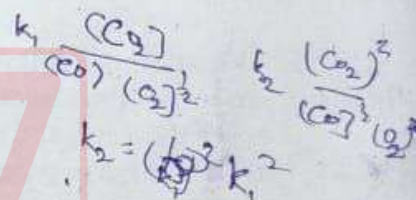 k₁ (CO₂) / (CO) (O₂)^½   k₂ (CO₂)² / (CO)² (O₂)
k₂ = k₁²